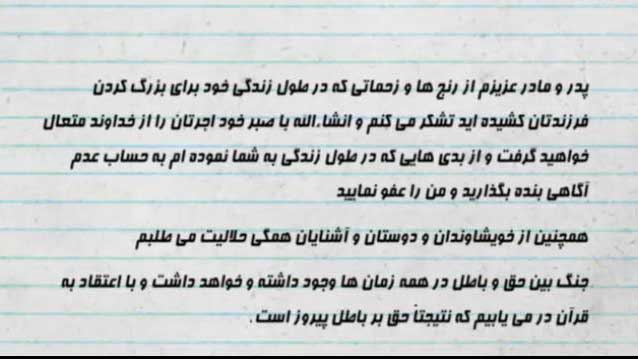 پدر و مادر عزیزم از رنج ها و زحماتی که در طول زندگی خود برای بزرگ کردن
فرزندتان کشیده اید تشکر می کنم و انشا.الله با صبر خود اجرتان را از خداوند متعال
خواهید گرفت و از بدی هایی که در طول زندگی به شما نموده ام به حساب عدم
آگاهی بنده بگذارید و من را عفو نمایید
همچنین از خویشاوندان و دوستان و آشنایان همگی حلالیت می طلبم
جنگ بین حق و باطل در همه زمان ها وجود داشته و خواهد داشت و با اعتقاد به
قرآن در می یابیم که نتیجتاً حق بر باطل پیروز است .